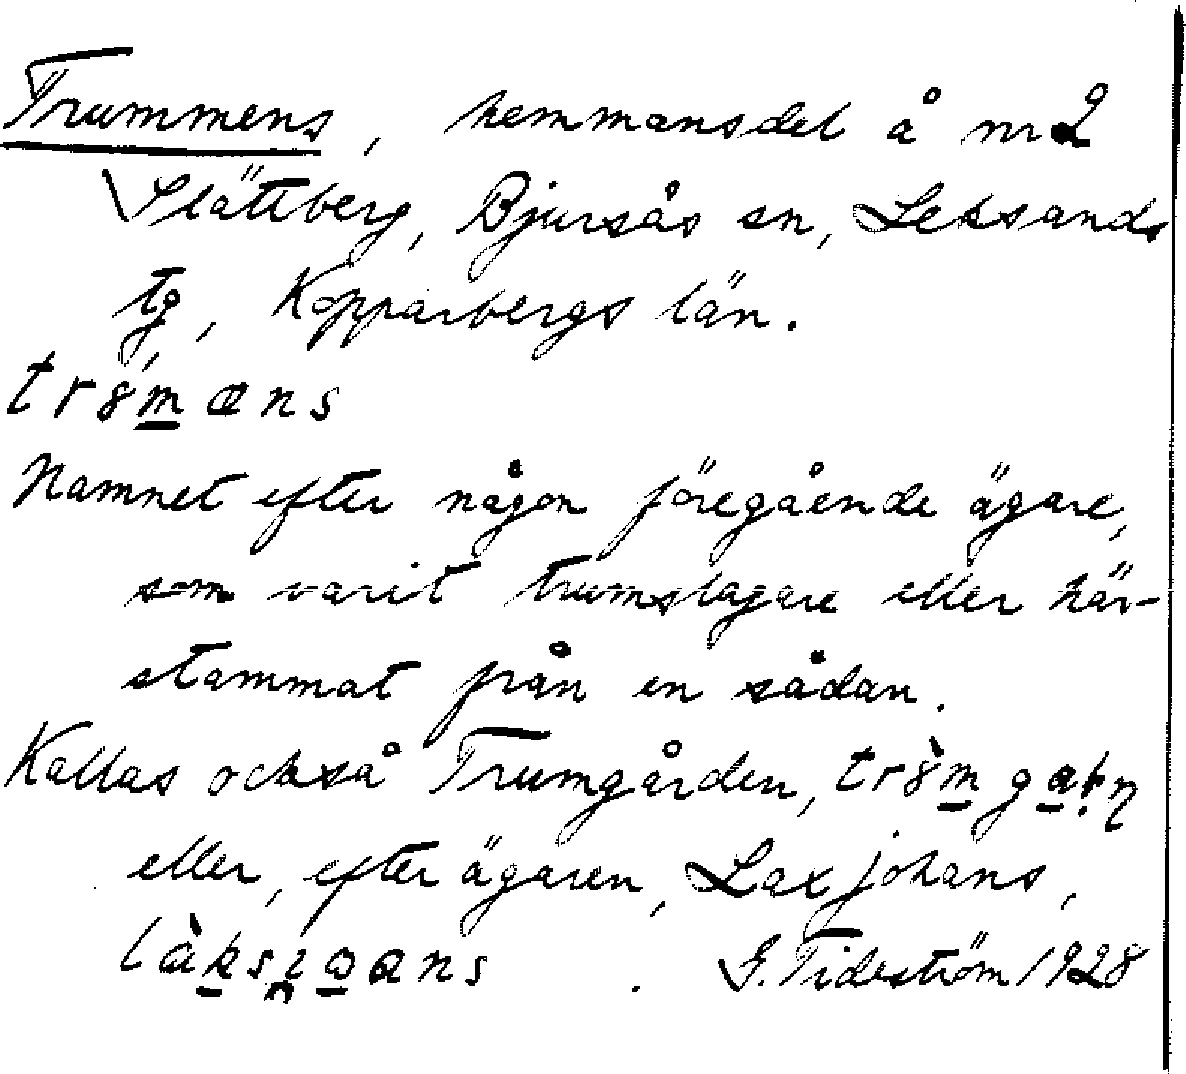 Trummens, hemmansdel å nr 2
Slättberg, Bjursås sn, Leksands
tg, Kopparbergs län.
tr8́mans
Namnet efter någon föregående ägare,
som varit trumslagare eller här-
stammat från en sådan.
Kallas också Trumgården,
eller, efter ägaren, Laxjohans,
G. Tideström 1928